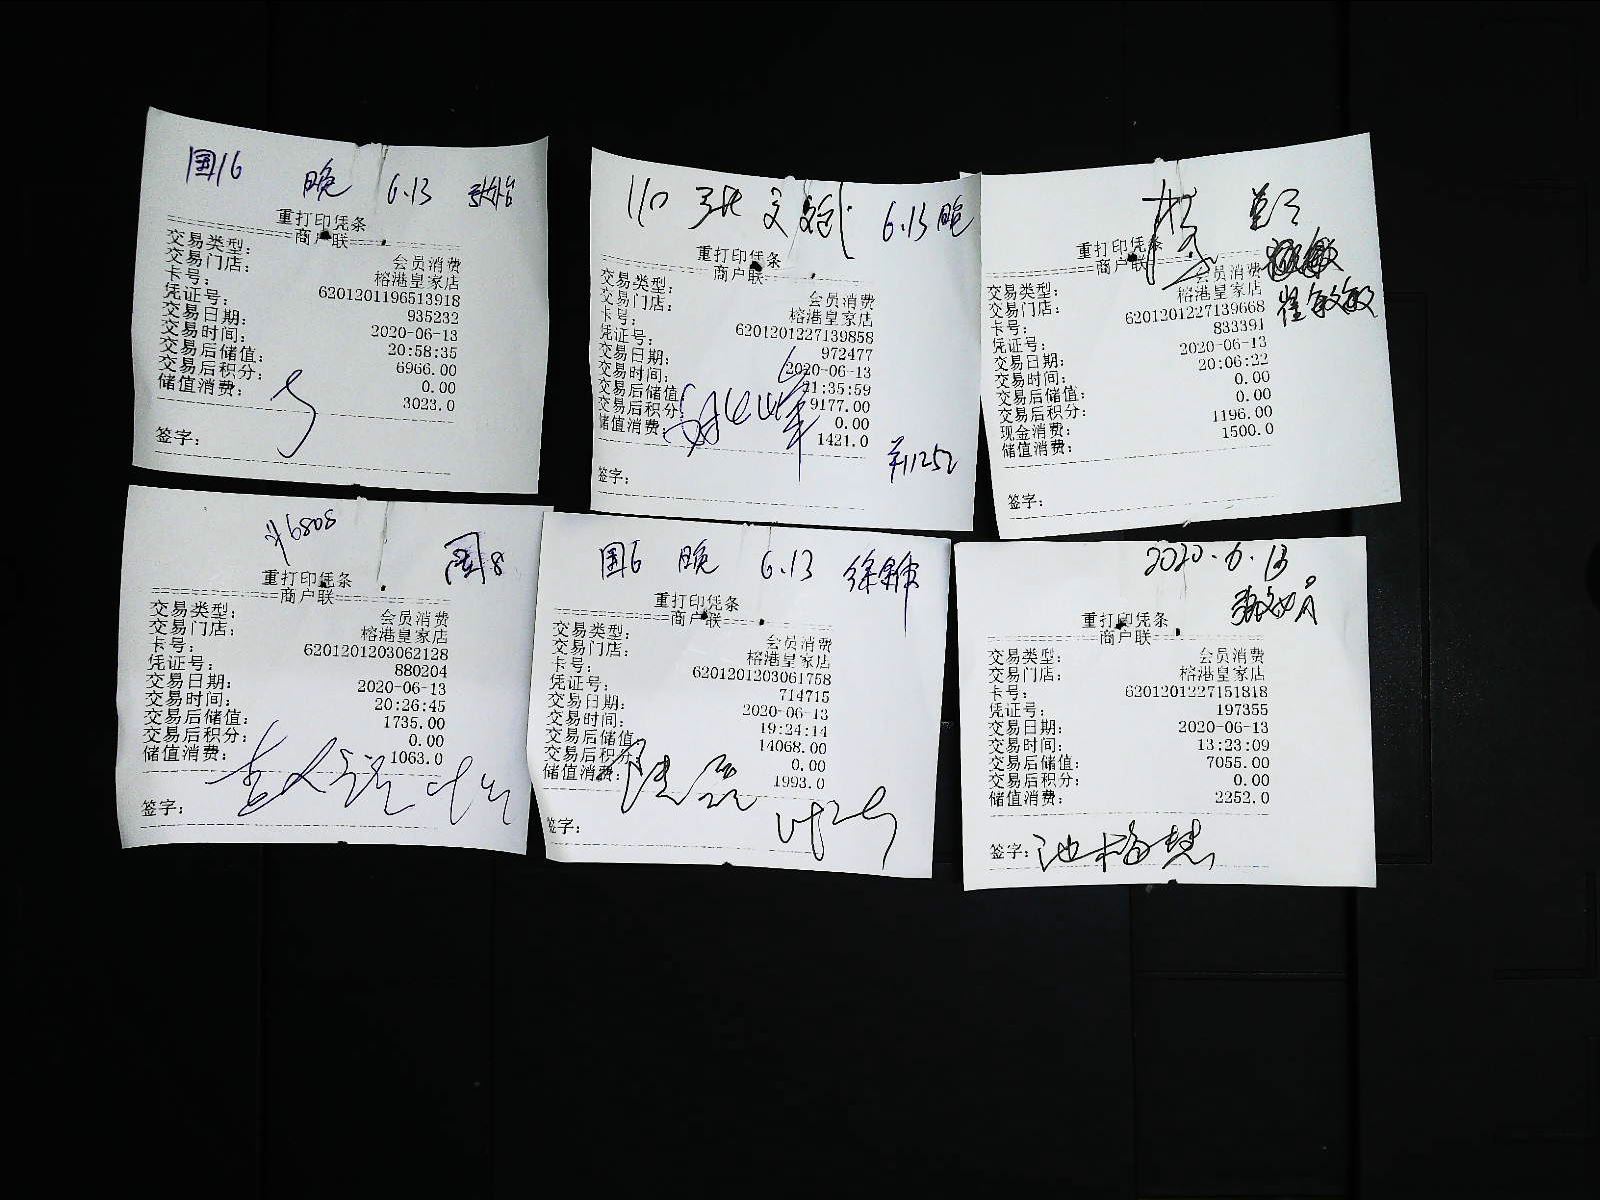 国16 晚 6.13
重打印凭条
商户联
交易类型： 会员消费
交易门店： 榕港皇家店
卡号： 6201201196513918
凭证号： 935232
交易日期： 2020-06-13
交易时间： 20:58:35
交易后储值： 6966.00
交易后积分： 0.00
储值消费： 3023.0
签字：
110 张文斌 6.13 晚
重打印凭条
商户联
交易类型： 会员消费
交易门店： 榕港皇家店
卡号： 6201201227139858
凭证号： 972477
交易日期： 2020-06-13
交易时间： 21:35:59
交易后储值 9177.00
交易后积分： 0.00
储值消费： 1421.0
¥11252
签字：
重打印凭条
商户联
崔敏敏
交易类型： 会员消费
交易门店： 榕港皇家店
卡号： 6201201227139668
凭证号： 833391
交易日期： 2020-06-13
交易时间： 20:06:22
交易后储值： 0.00
交易后积分： 0.00
现金消费： 1196.00
储值消费： 1500.0
签字：
#6808 国8
重打印凭条
商户联
交易类型： 会员消费
交易门店： 榕港皇家店
卡号： 6201201203062128
凭证号： 880204
交易日期： 2020-06-13
交易时间： 20:26:45
交易后储值： 1735.00
交易后积分： 0.00
储值消费： 1063.0
签字：
国6 晚 6.13
重打印凭条
商户联
交易类型： 会员消费
交易门店： 榕港皇家店
卡号： 6201201203061758
凭证号： 714715
交易日期： 2020-06-13
交易时间： 19:24:14
交易后储值 14068.00
交易后积分 0.00
储值消费： 1993.0
签字：
2020.6.13
重打印凭条
商户联
交易类型： 会员消费
交易门店： 榕港皇家店
卡号： 6201201227151818
凭证号： 197355
交易日期： 2020-06-13
交易时间： 13:23:09
交易后储值： 7055.00
交易后积分： 0.00
储值消费： 2252.0
签字：池梅慧